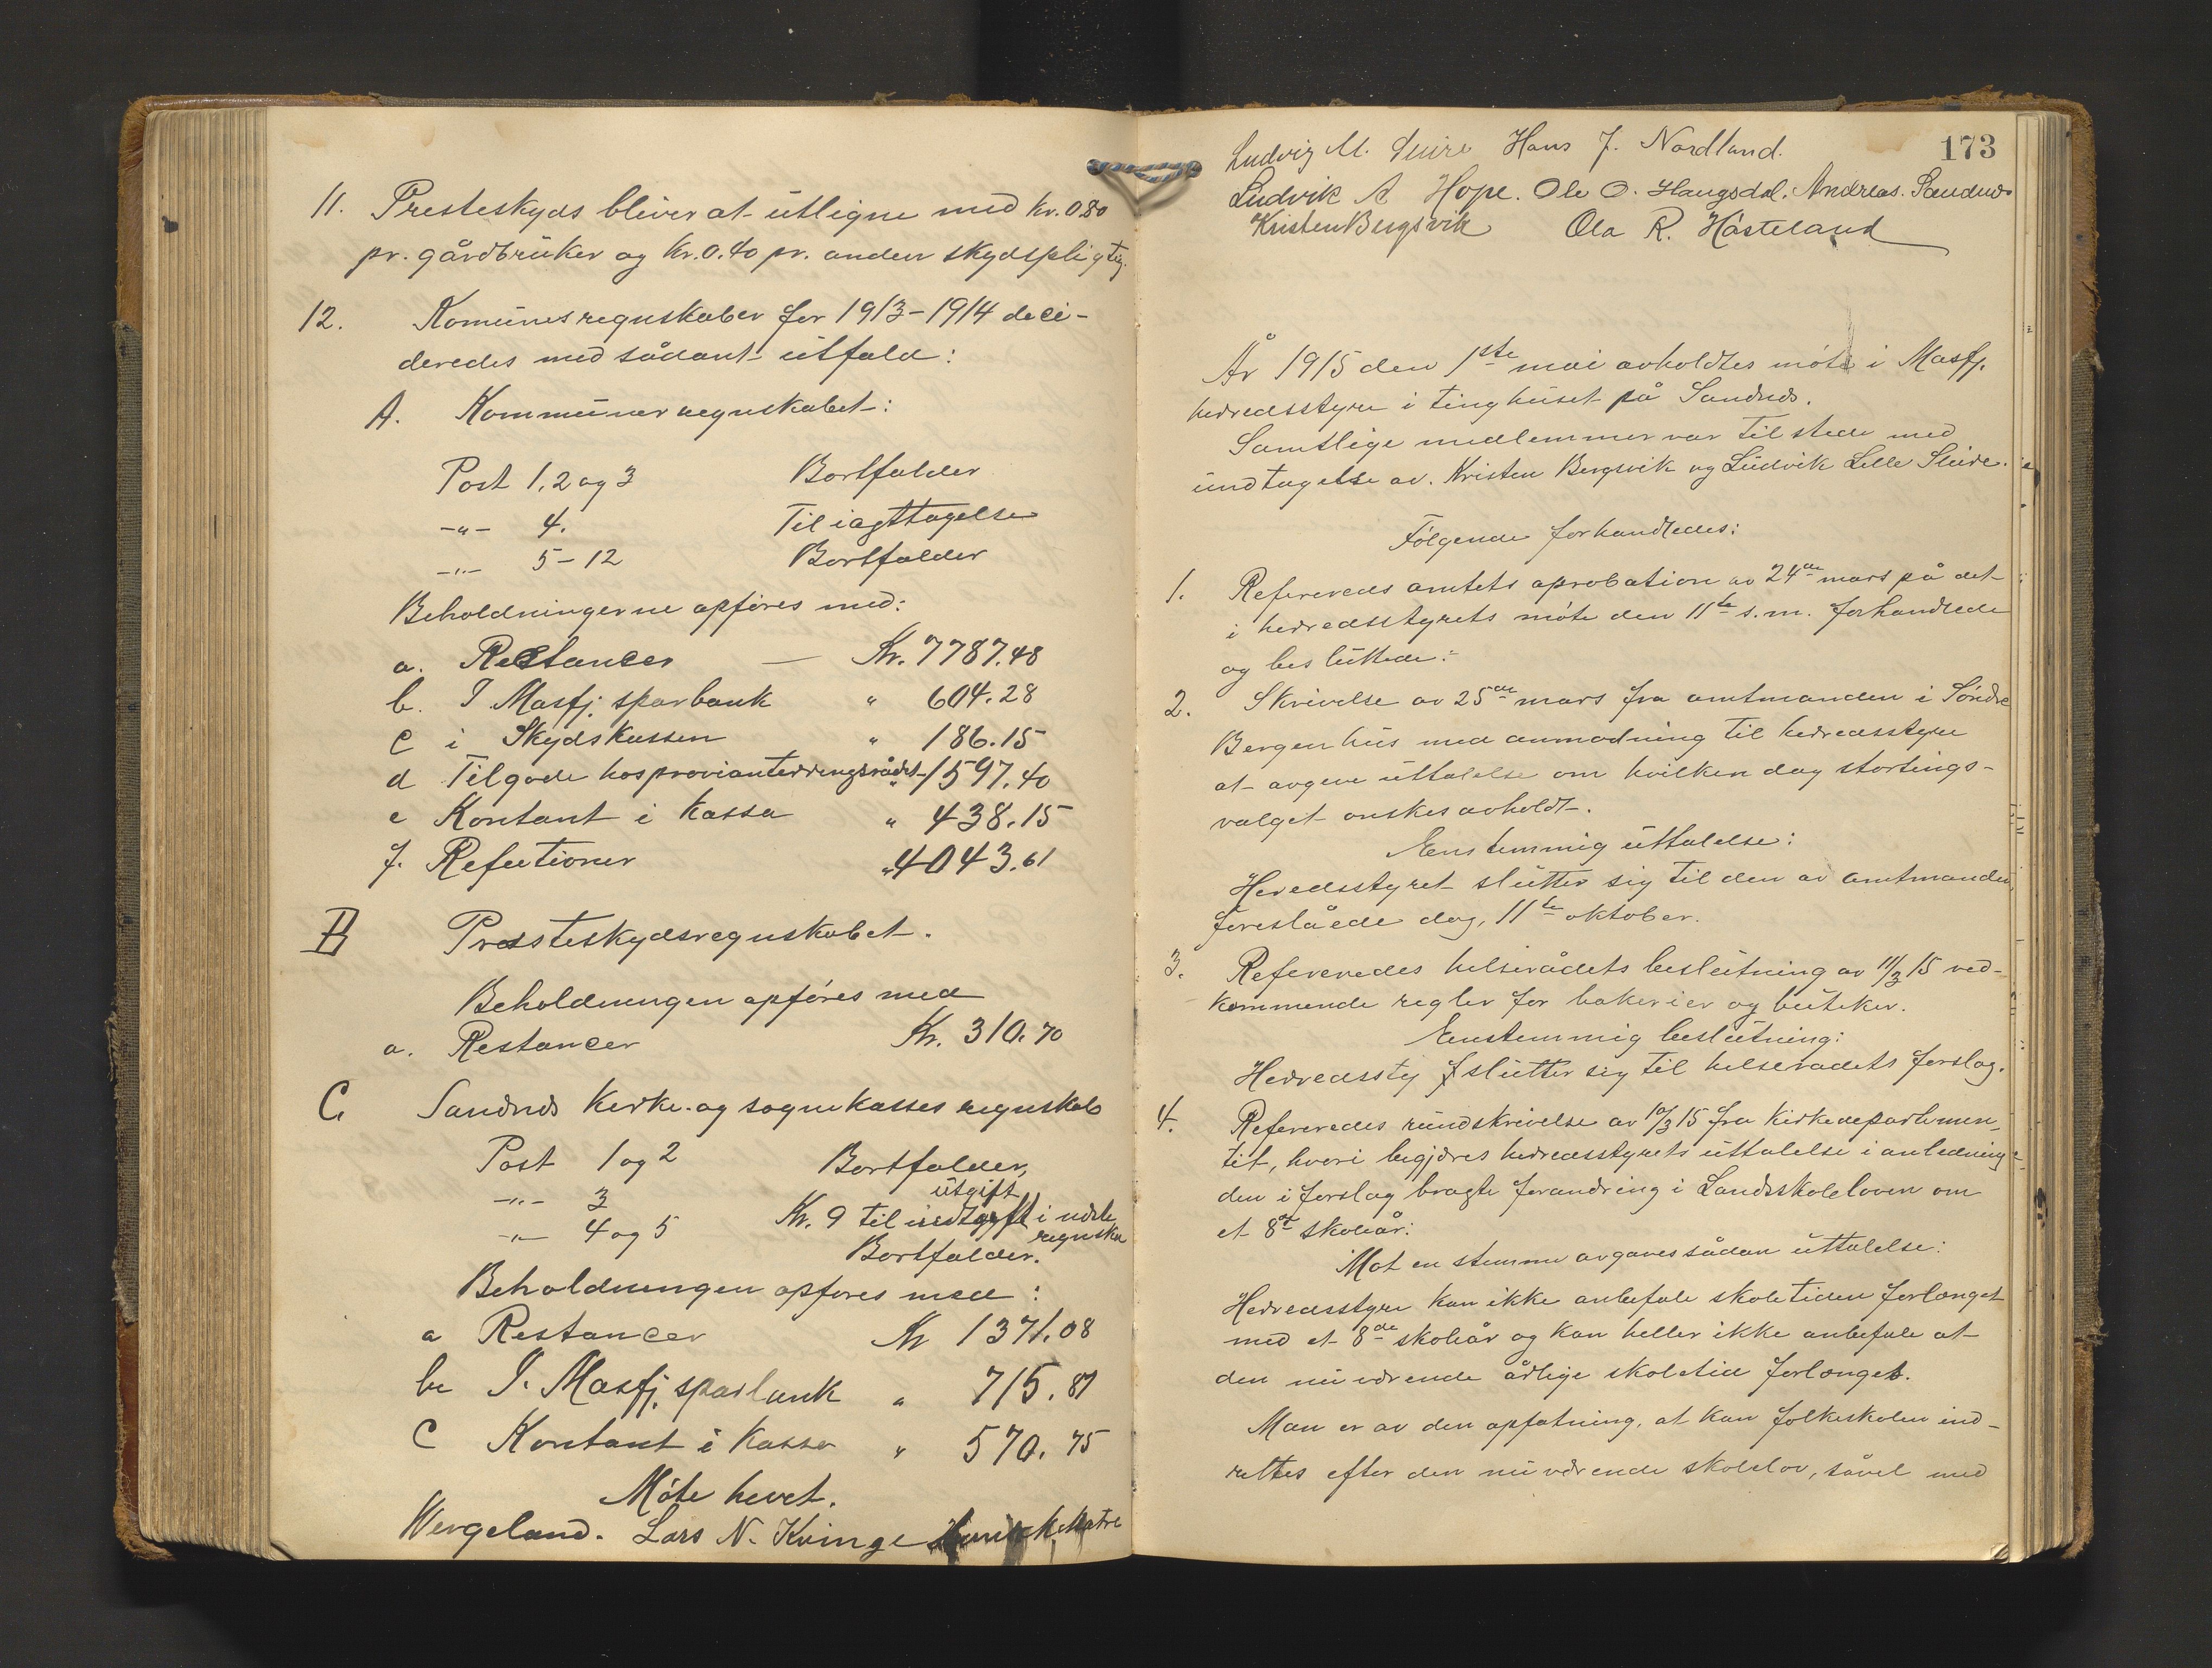 11. Presteskyds bliver at utligne med kr. 0.80
pr. gårdbruker og kr. 0.40 pr. anden skydspligtig.
12. Komunesregnskaber for 1913-1914 deci-
deredes med sådant utfald:
A. Kommuneregnskabet:
Post 1, 2 og 3 Bortfalder
-"- 4. Til iagttagelse
-"- 5-12 Bortfalder
Beholdningerne opføres med:
a. Restancer — Kr. 7787.48
b. I Masfj. sparbank " 604.28
c i Skydskassen " 186.15
d Tilgode hos provianteringsrådet " 1597.40
e Kontant i kassa " 438.15
f. Refutioner " 4043.61
B Presteskydsregnskabet.
Beholdningen opføres med
a. Restancer Kr. 310.70
C. Sandnes Kirke- og sognekasses regnskab
Post 1 og 2 Bortfalder,
utgift
-"- 3 Kr. 9 til i neste
regnska
-"- 4 og 5 Bortfalder.
Beholdningen opføres med:
a Restancer Kr 1371.08
b I. Masfj. sparbank " 715.81
c Kontant i Kassa " 570.75
Møte hevet.
Wergeland. Lars N. Kvinge Matre
173
Ludvig M. Hans J. Nordland.
Ludvik A Hope. Ole O. Haugsdal. Andreas. Sandnes
Kristen Bergsvik Ola R. Håsteland
År 1915 den 1ste mai avholdtes møte i Masfj.
herredsstyre i tinghuset på Sandnes.
Samtlige medlemmer var tilstede med
undtagelse av. Kristen Bergsvik og Ludvik Lille
Følgende forhandledes:
1. Refereredes amtets aprobation av 24de mars på det
i herredsstyrets møte den 11te s.m. forhandlede
og besluttede:
2. Skrivelse av 25de mars fra amtmanden i Søndre
Bergenhus med anmodning til herredsstyre
at avgive uttalelse om hvilken dag stortings-
valget ønskes avholdt.
Enstemmig uttalelse:
Heredsstyret slutter sig til den av amtmanden
foreslåede dag, 11te oktober.
3. Refereredes helserådets beslutning av 11/3 15 ved-
kommende regler for bakerier og butiker.
Enstemmig beslutning:
Herredssty slutter sig til helseradets forslag.
4. Refereredes rundskrivelse av 10/3 15 fra kirkedepartemen-
tet, hvori begjæres herredsstyrets uttalelse i anledning
den i forslag bragte forandring i Landsskoleloven om
et 8de skoleår:
Mot en stemme avgaves sådan uttalelse:
Herredsstyre kan ikke anbefale skoletiden forlænget
med et 8de skoleår og kan heller ikke anbefale at
den nuværende årlige skoletid forlænges.
Man er av den opfatning, at kan folkeskolen ind-
rettes efter den nuværende skolelov, såvel med